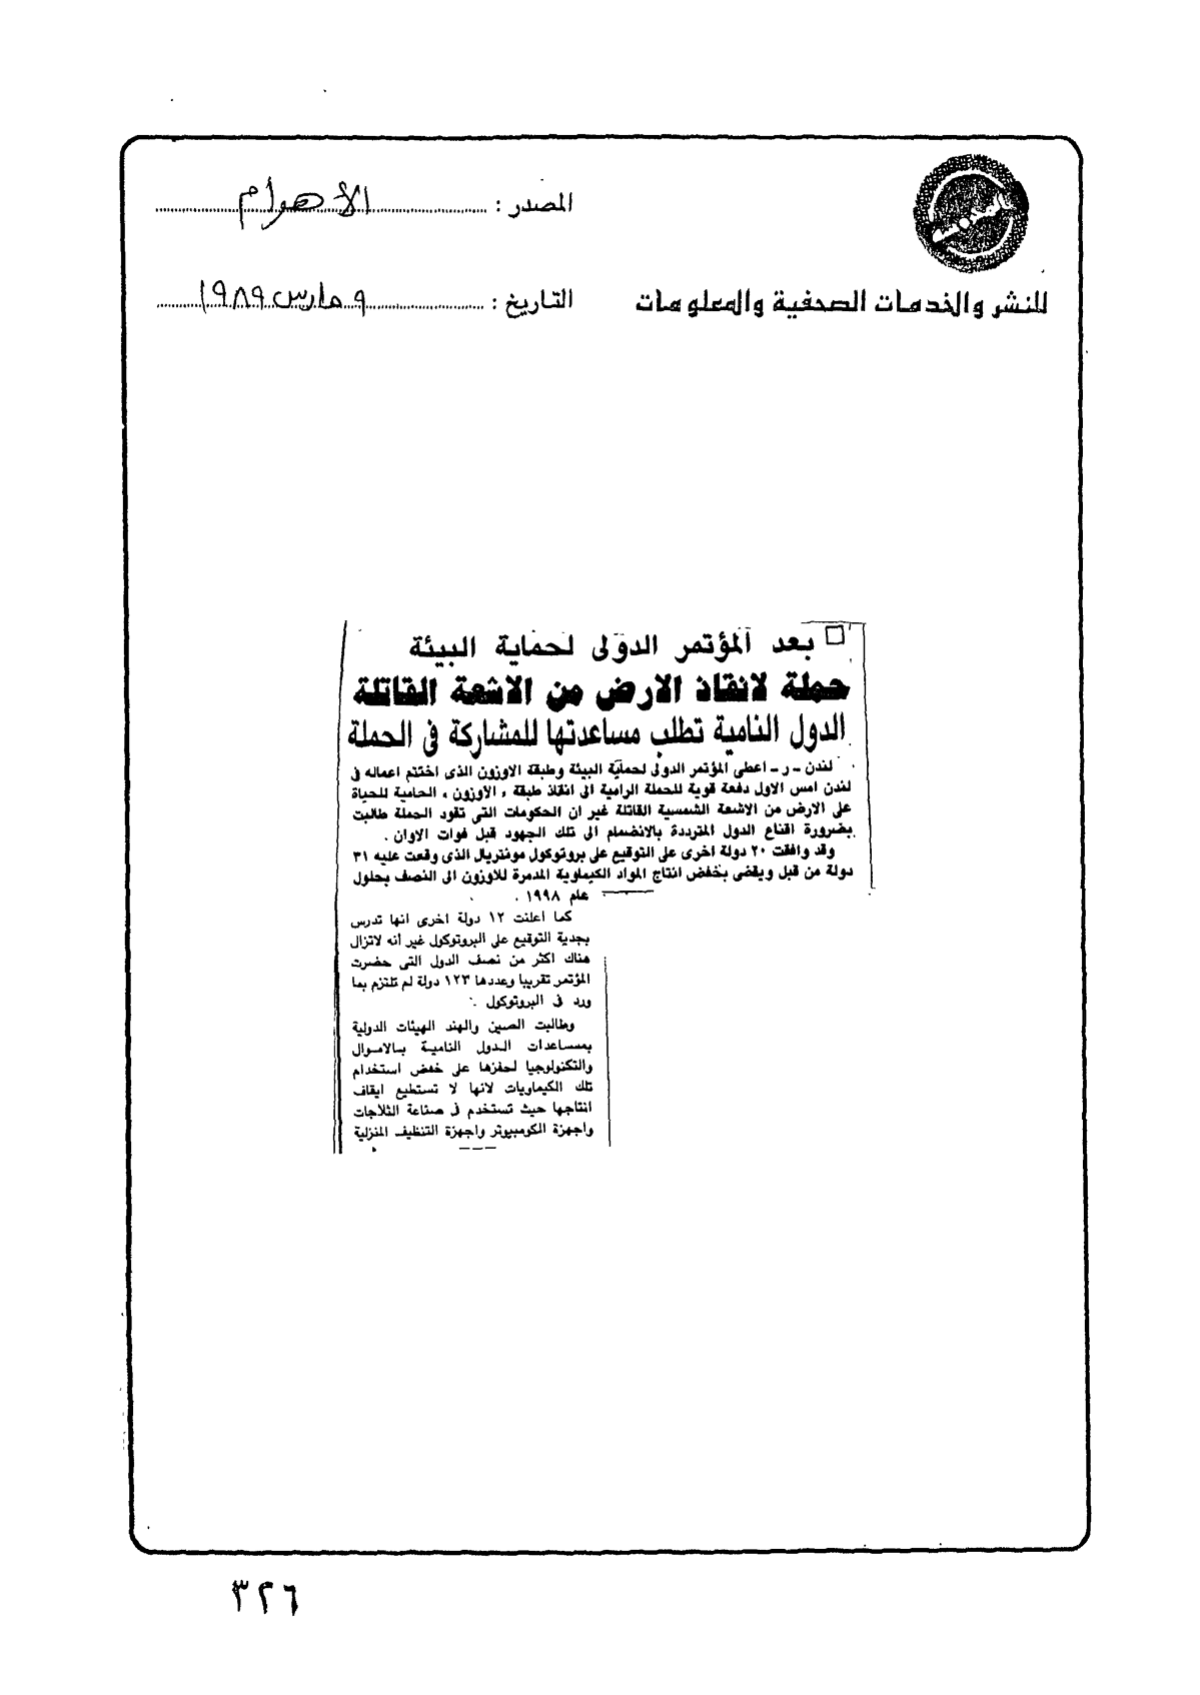 المصدر : الأهرام
للنشر والخدمات الصحفية والمعلومات
التاريخ : ٩ مارس ١٩٨٩
بعد المؤتمر الدولى لحماية البيئة
حملة لانقاذ الارض من الاشعة القاتلة
الدول النامية تطلب مساعدتها للمشاركة فى الحملة
لندن - ر - اعطى المؤتمر الدولى لحماية البيئة وطبقة الاوزون الذى اختتم اعماله فى
لندن امس الاول دفعة قوية للحملة الرامية الى انقاذ طبقة « الاوزون » الحامية للحياة
على الارض من الاشعة الشمسية القاتلة غير ان الحكومات التى تقود الحملة طالبت
بضرورة اقناع الدول المترددة بالانضمام الى تلك الجهود قبل فوات الاوان .
وقد وافقت ٢٠ دولة اخرى على التوقيع على بروتوكول مونتريال الذى وقعت عليه ٣١
دولة من قبل ويقضى بخفض انتاج المواد الكيماوية المدمرة للاوزون الى النصف بحلول
عام ١٩٩٨ .
كما اعلنت ١٢ دولة اخرى انها تدرس
بجدية التوقيع على البروتوكول غير أنه لاتزال
هناك اكثر من نصف الدول التى حضرت
المؤتمر تقريبا وعددها ١٢٣ دولة لم تلتزم بما
ورد فى البروتوكول .
وطالبت الصين والهند الهيئات الدولية
بمساعدات الدول النامية بالاموال
والتكنولوجيا لحفزها على خفض استخدام
تلك الكيماويات لانها لا تستطيع ايقاف
انتاجها حيث تستخدم فى صناعة الثلاجات
واجهزة الكومبيوتر واجهزة التنظيف المنزلية
٣٢٦